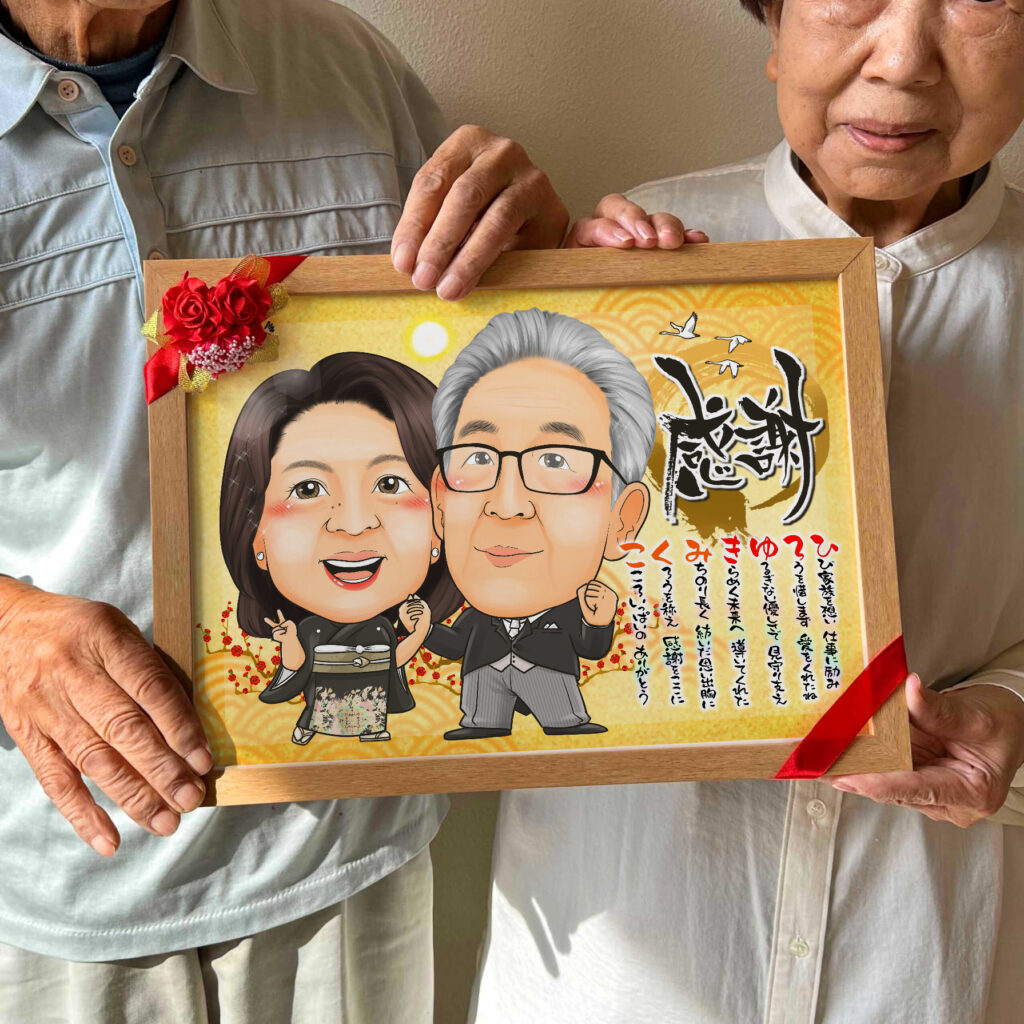 感謝
ひび家族を想い 仕事に励み
ろうを惜しまず 愛をくれたね
ゆるぎない優しさで 見守り支え
きらめく未来へ 導いてくれた
みちのり長く 紡いだ思い出胸に
くろうを称え 感謝をここに
こころいっぱいの ありがとう